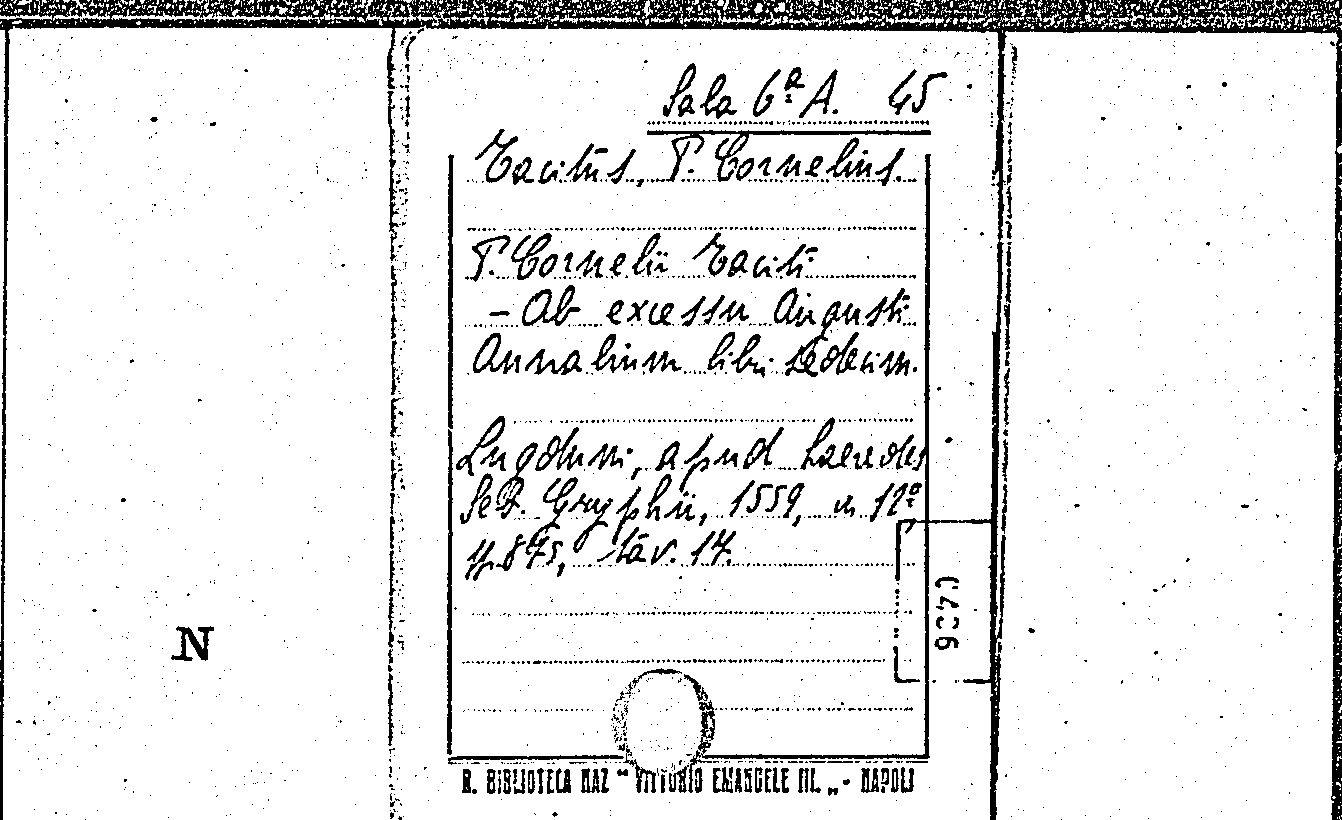 Sala 6ª A. 45
Tacitus, P. Cornelius.
P. Cornelii Taciti
- Ab excessu Augusti
Annalium libri sedecim.
Lugduni, apud haeredes
Seb. Gryphii, 1559, in 12º
pp. 875, tav. 17.
N
R. BIBLIOTECA NAZ "VITTORIO EMANUELE III„ - NAPOLI